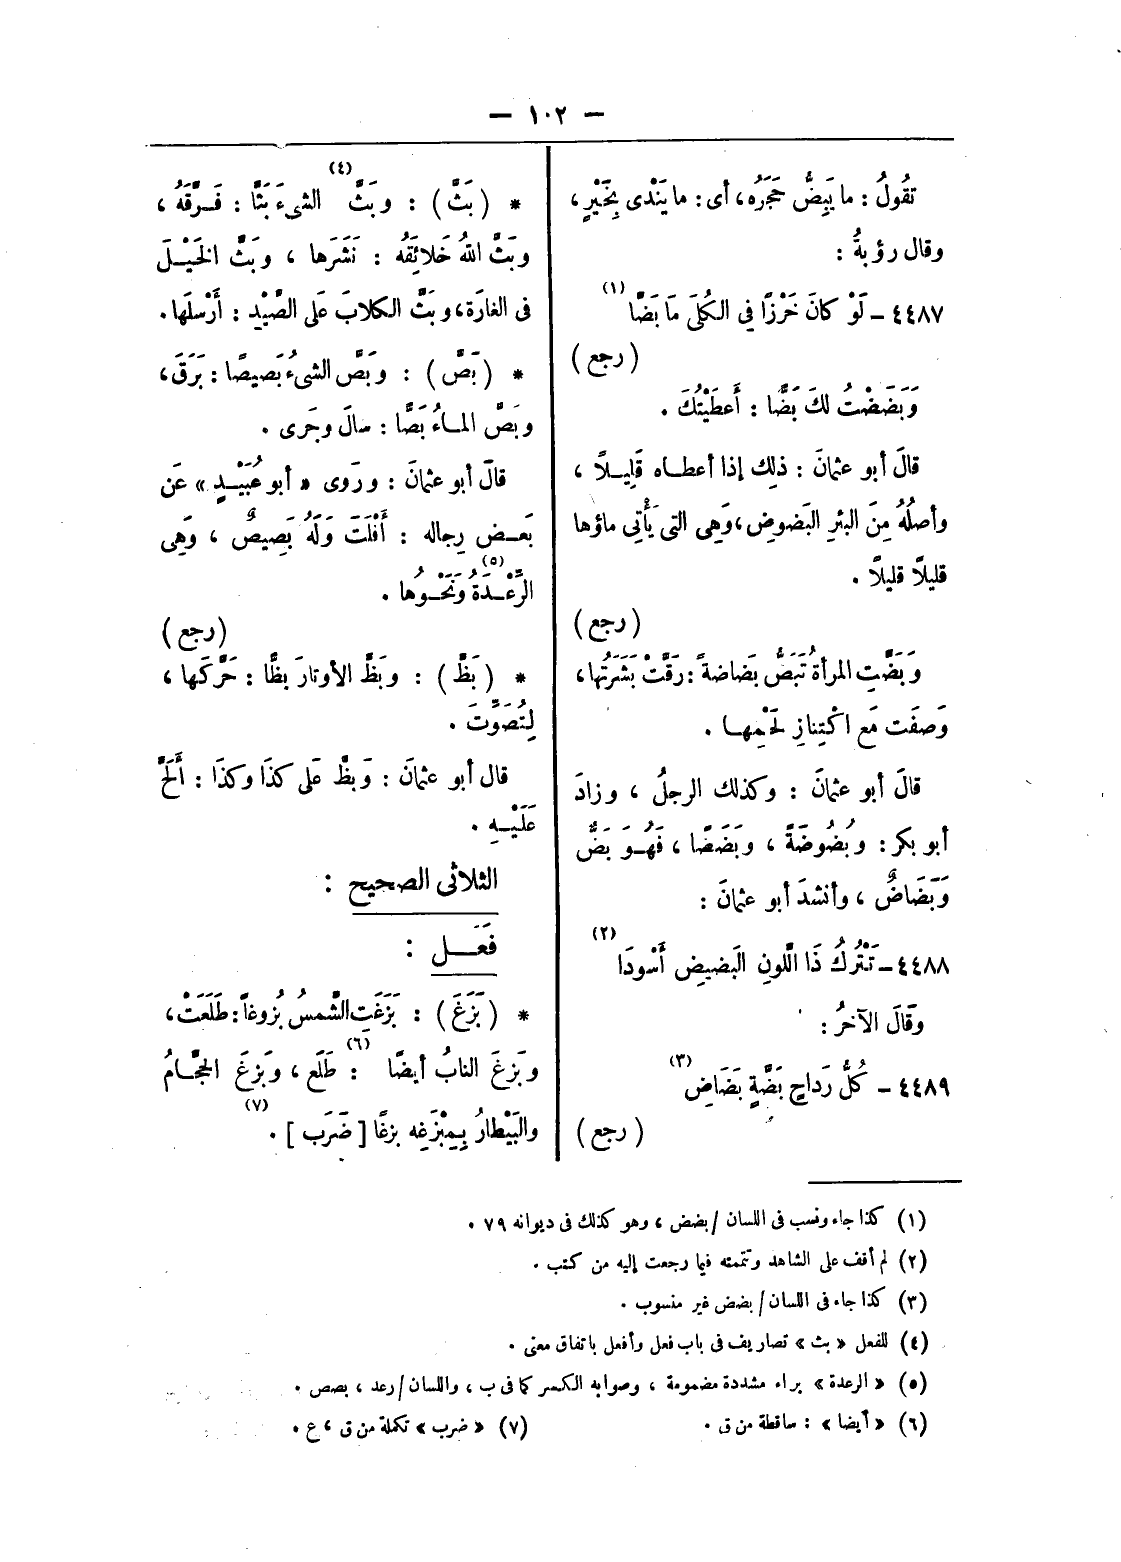 — ١٠٢ —
تقُولُ : ما يَبِضُّ حَجَرُه ، أى : ما يَنْدى بِخَيْرٍ ،
وقال رؤبةُ :
٤٤٨٧ – لَوْ كانَ خَرْزًا فِي الكُلَى مَا بَضَّا (١)
( رجع )
وَبَضَضْتُ لكَ بَضًّا : أَعطَيْتُكَ .
قالَ أبو عثمانَ : ذلِك إذا أعطـاه قَلِيـلاً ،
وأصلُهُ مِنَ البئرِ البَضوضِ ، وَهِى التى يَأْتِى ماؤها
قليلاً قليلاً .
( رجع )
وَبَضَّتِ المرأةُ تَبَضُّ بَضاضةً : رَقَّتْ بَشَرَتُها ،
وَصفَت مَع اكْتِنازِ لَحْمِهـا .
قالَ أبو عثمانَ : وكذلك الرجلُ ، وزادَ
أبو بكر : وبُضُوضَةً ، وبَضَضًا ، فَهُـوَ بَضٌّ
وَبَضَاضٌ ، وأنشدَ أبو عثمانَ :
٤٤٨٨ – تَتْرُكُ ذَا اللَّونِ البَضيضِ أَسْودَا (٢)
وقَالَ الآخرُ :
٤٤٨٩ – كُلُّ رَداحٍ بَضَّةٍ بَضَاضِ (٣)
( رجع )
* ( بَثَّ ) : وبَثَّ (٤) الشىءَ بَثًّا : فَـرَّقَهُ ،
وبَثَّ اللهُ خَلائِقَهُ : نَشَرَها ، وبَثَّ الخَيْـلَ
فى الغارَة ، وبَثَّ الكلابَ عَلى الصَّيْدِ : أَرْسلَها .
* ( بَصَّ ) : وبَصَّ الشىءُ بَصيصًا : بَرَقَ ،
وبَصَّ المـاءُ بَصًّا : سالَ وجَرى .
قالَ أبو عثمانَ : ورَوى « أبو عُبَيْـدٍ » عَن
بَعـض رِجاله : أَفْلَتَ وَلَهُ بَصِيصٌ ، وَهِى
الرَّعْـدَةُ (٥) ونَحْـوُها .
( رجع )
* ( بَظَّ ) : وبَظَّ الأوتارَ بظًّا : حَرَّكَها ،
لِتُصَوِّتَ .
قال أبو عثمانَ : وَبظَّ عَلى كذَا وكذَا : أَلَحَّ
عَلَيْـهِ .
الثلاثى الصحيح :
فَعَـــل :
* ( بَزَغَ ) : بَزَغَتِ الشَّمسُ بُزوغاً : طَلَعَتْ ،
وبَزغَ النابُ أيضًا (٦) : طَلَع ، وبَزغَ الحجَّـامُ
والبَيْطارُ بِمِبْزَغِه بزغًا [ ضَرَب ] (٧) .
(١) كذا جاء ونسب فى اللسان / بضض ، وهو كذلك فى ديوانه ٧٩ .
(٢) لم أقف على الشاهد وتتمته فيما رجعت إليه من كتب .
(٣) كذا جاء فى اللسان / بضض غير منسوب .
(٤) للفعل « بث » تصاريف فى باب فعل وأفعل باتفاق معنى .
(٥) « الرعدة » براء مشددة مضمومة ، وصوابه الكسر كما فى ب ، واللسان / رعد ، بصص .
(٦) « أيضا » : ساقطة من ق .	(٧) « ضرب » تكملة من ق ، ع .